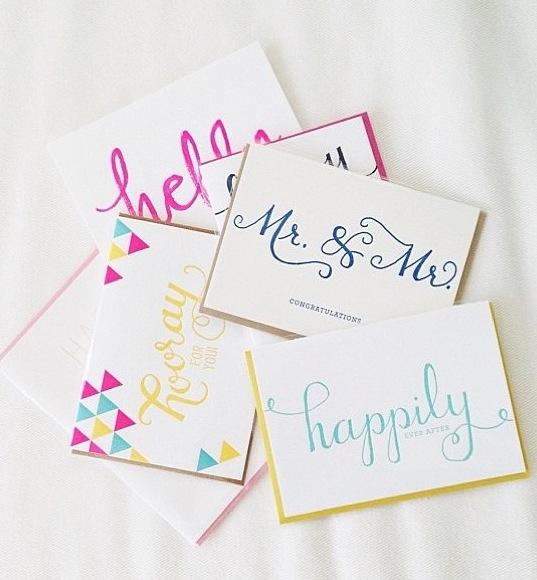 hello
Mr. & Mr.
CONGRATULATIONS
hooray
FOR
YOU!
happily
EVER AFTER